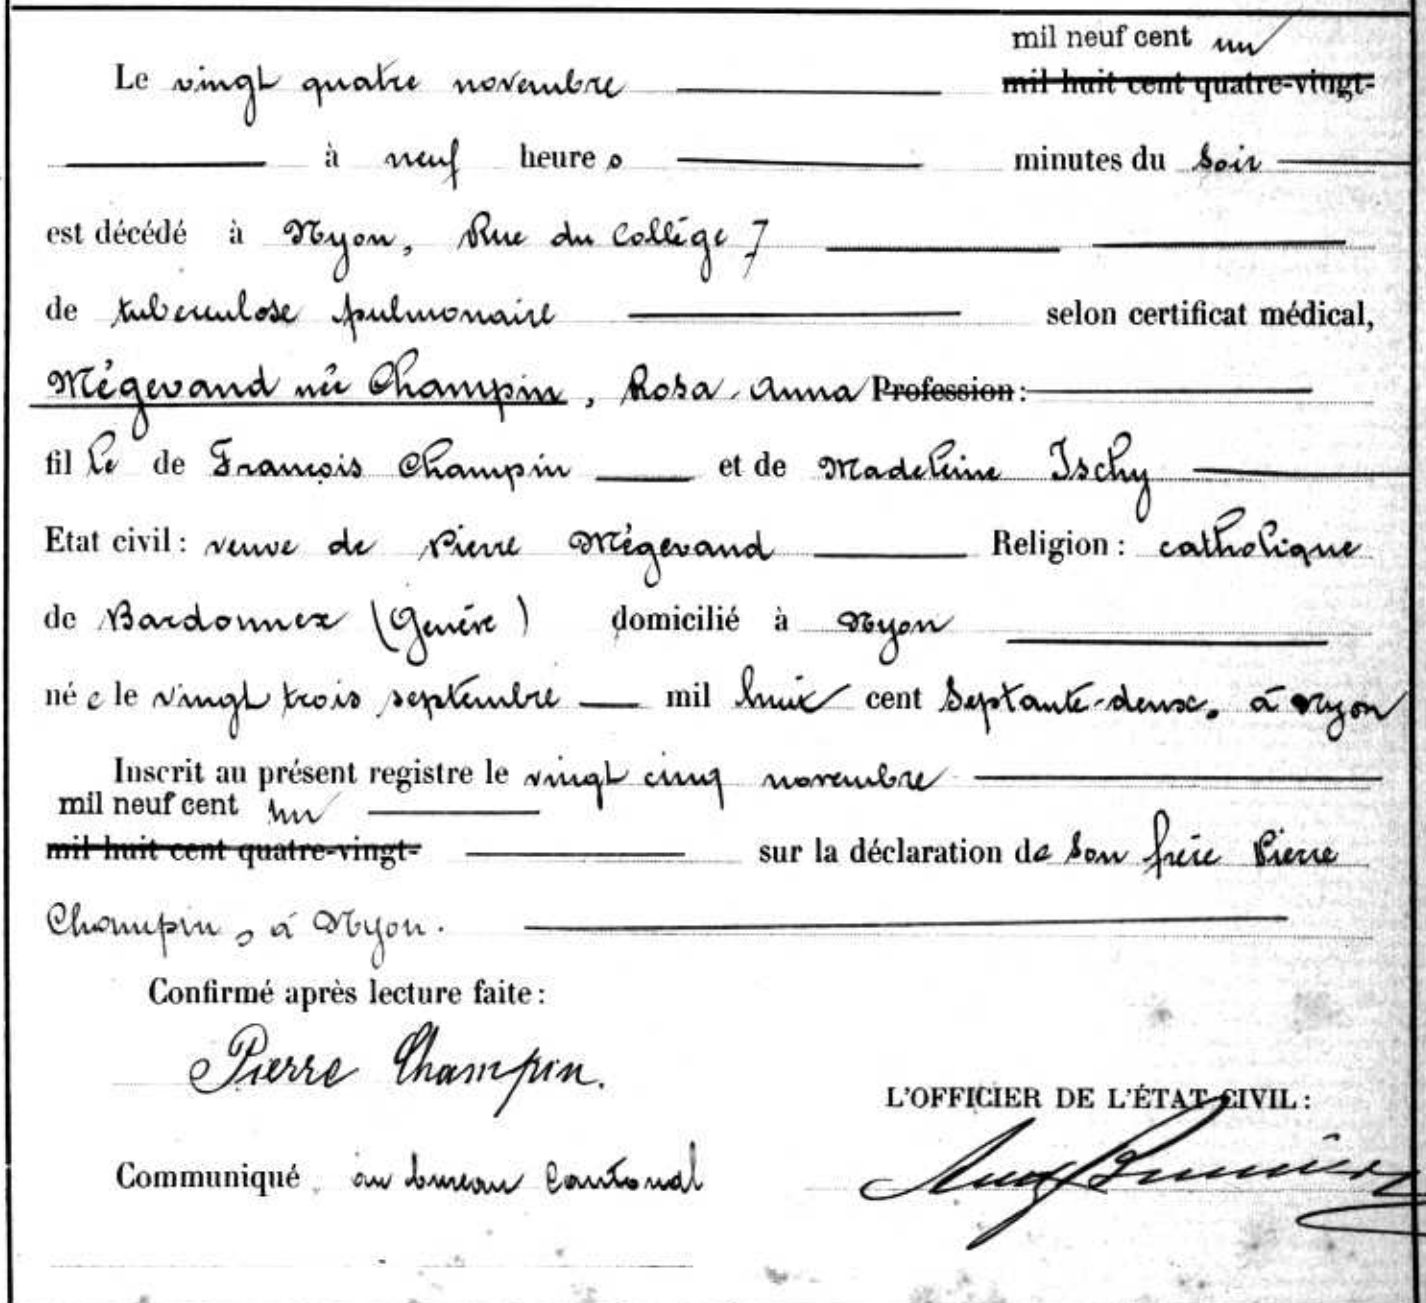 mil neuf cent un
Le vingt quatre novembre mil huit cent quatre-vingt-
à neuf heures minutes du soir
est décédé à Nyon, Rue du Collége 7
de tuberculose pulmonaire selon certificat médical,
Mégevand née Champin, Rosa-Anna Profession:
fille de François Champin et de Madeleine Ischy
Etat civil: veuve de Pierre Mégevand Religion: catholique
de Bardonnex (Genève) domicilié à Nyon
née le vingt trois septembre mil huit cent septante-deux, à Nyon
Inscrit au présent registre le vingt cinq novembre
mil neuf cent un
mil huit cent quatre-vingt- sur la déclaration de son frère Pierre
Champin, à Nyon.
Confirmé après lecture faite:
Pierre Champin.
L'OFFICIER DE L'ÉTAT CIVIL:
Communiqué au bureau cantonal